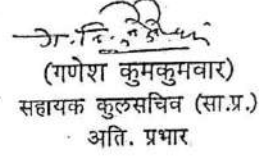 (गणेश कुमकुमवार)
सहायक कुलसचिव (सा.प्र.)
अति. प्रभार